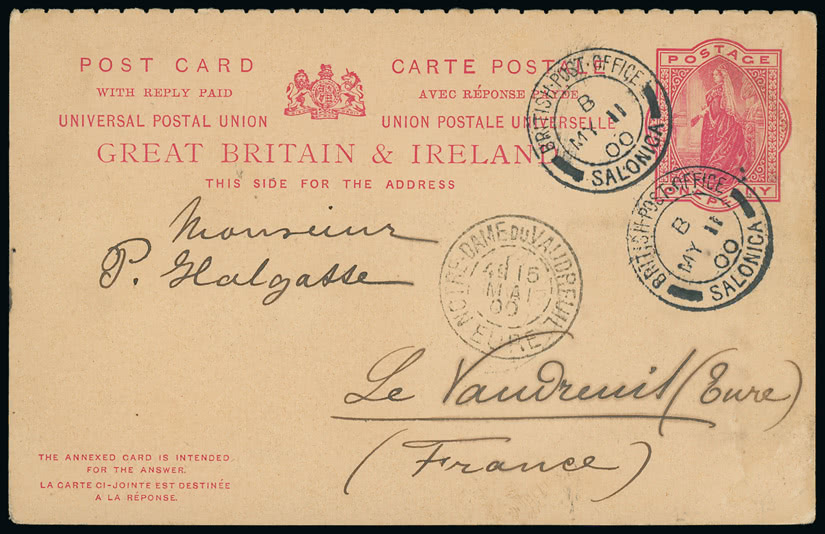 POST CARD
WITH REPLY PAID
UNIVERSAL POSTAL UNION
CARTE POSTALE
AVEC RÉPONSE PAYÉE
UNION POSTALE UNIVERSELLE
GREAT BRITAIN & IRELAND
THIS SIDE FOR THE ADDRESS
POSTAGE
ONE PENNY
BRITISH·POST·OFFICE
B
MY 11
00
SALONICA
BRITISH·POST·OFFICE
B
MY 11
00
SALONICA
Monsieur
P. Halgatte
NOTRE-DAME DU VAUDREUIL
15
MAI
00
EURE
Le Vaudreuil (Eure)
(France)
THE ANNEXED CARD IS INTENDED
FOR THE ANSWER.
LA CARTE CI-JOINTE EST DESTINÉE
A LA RÉPONSE.